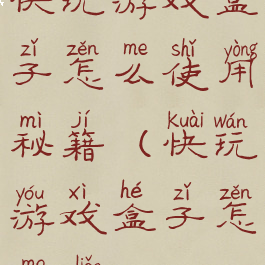 快玩游戏盒
zǐ zěn me shǐ yòng
子怎么使用
mì jí kuài wán
秘籍(快玩
yóu xì hé zǐ zěn
游戏盒子怎
me liǎo